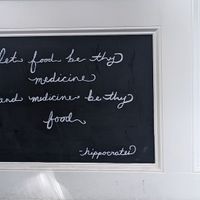 let food be thy
medicine
and medicine be thy
food
-hippocrates